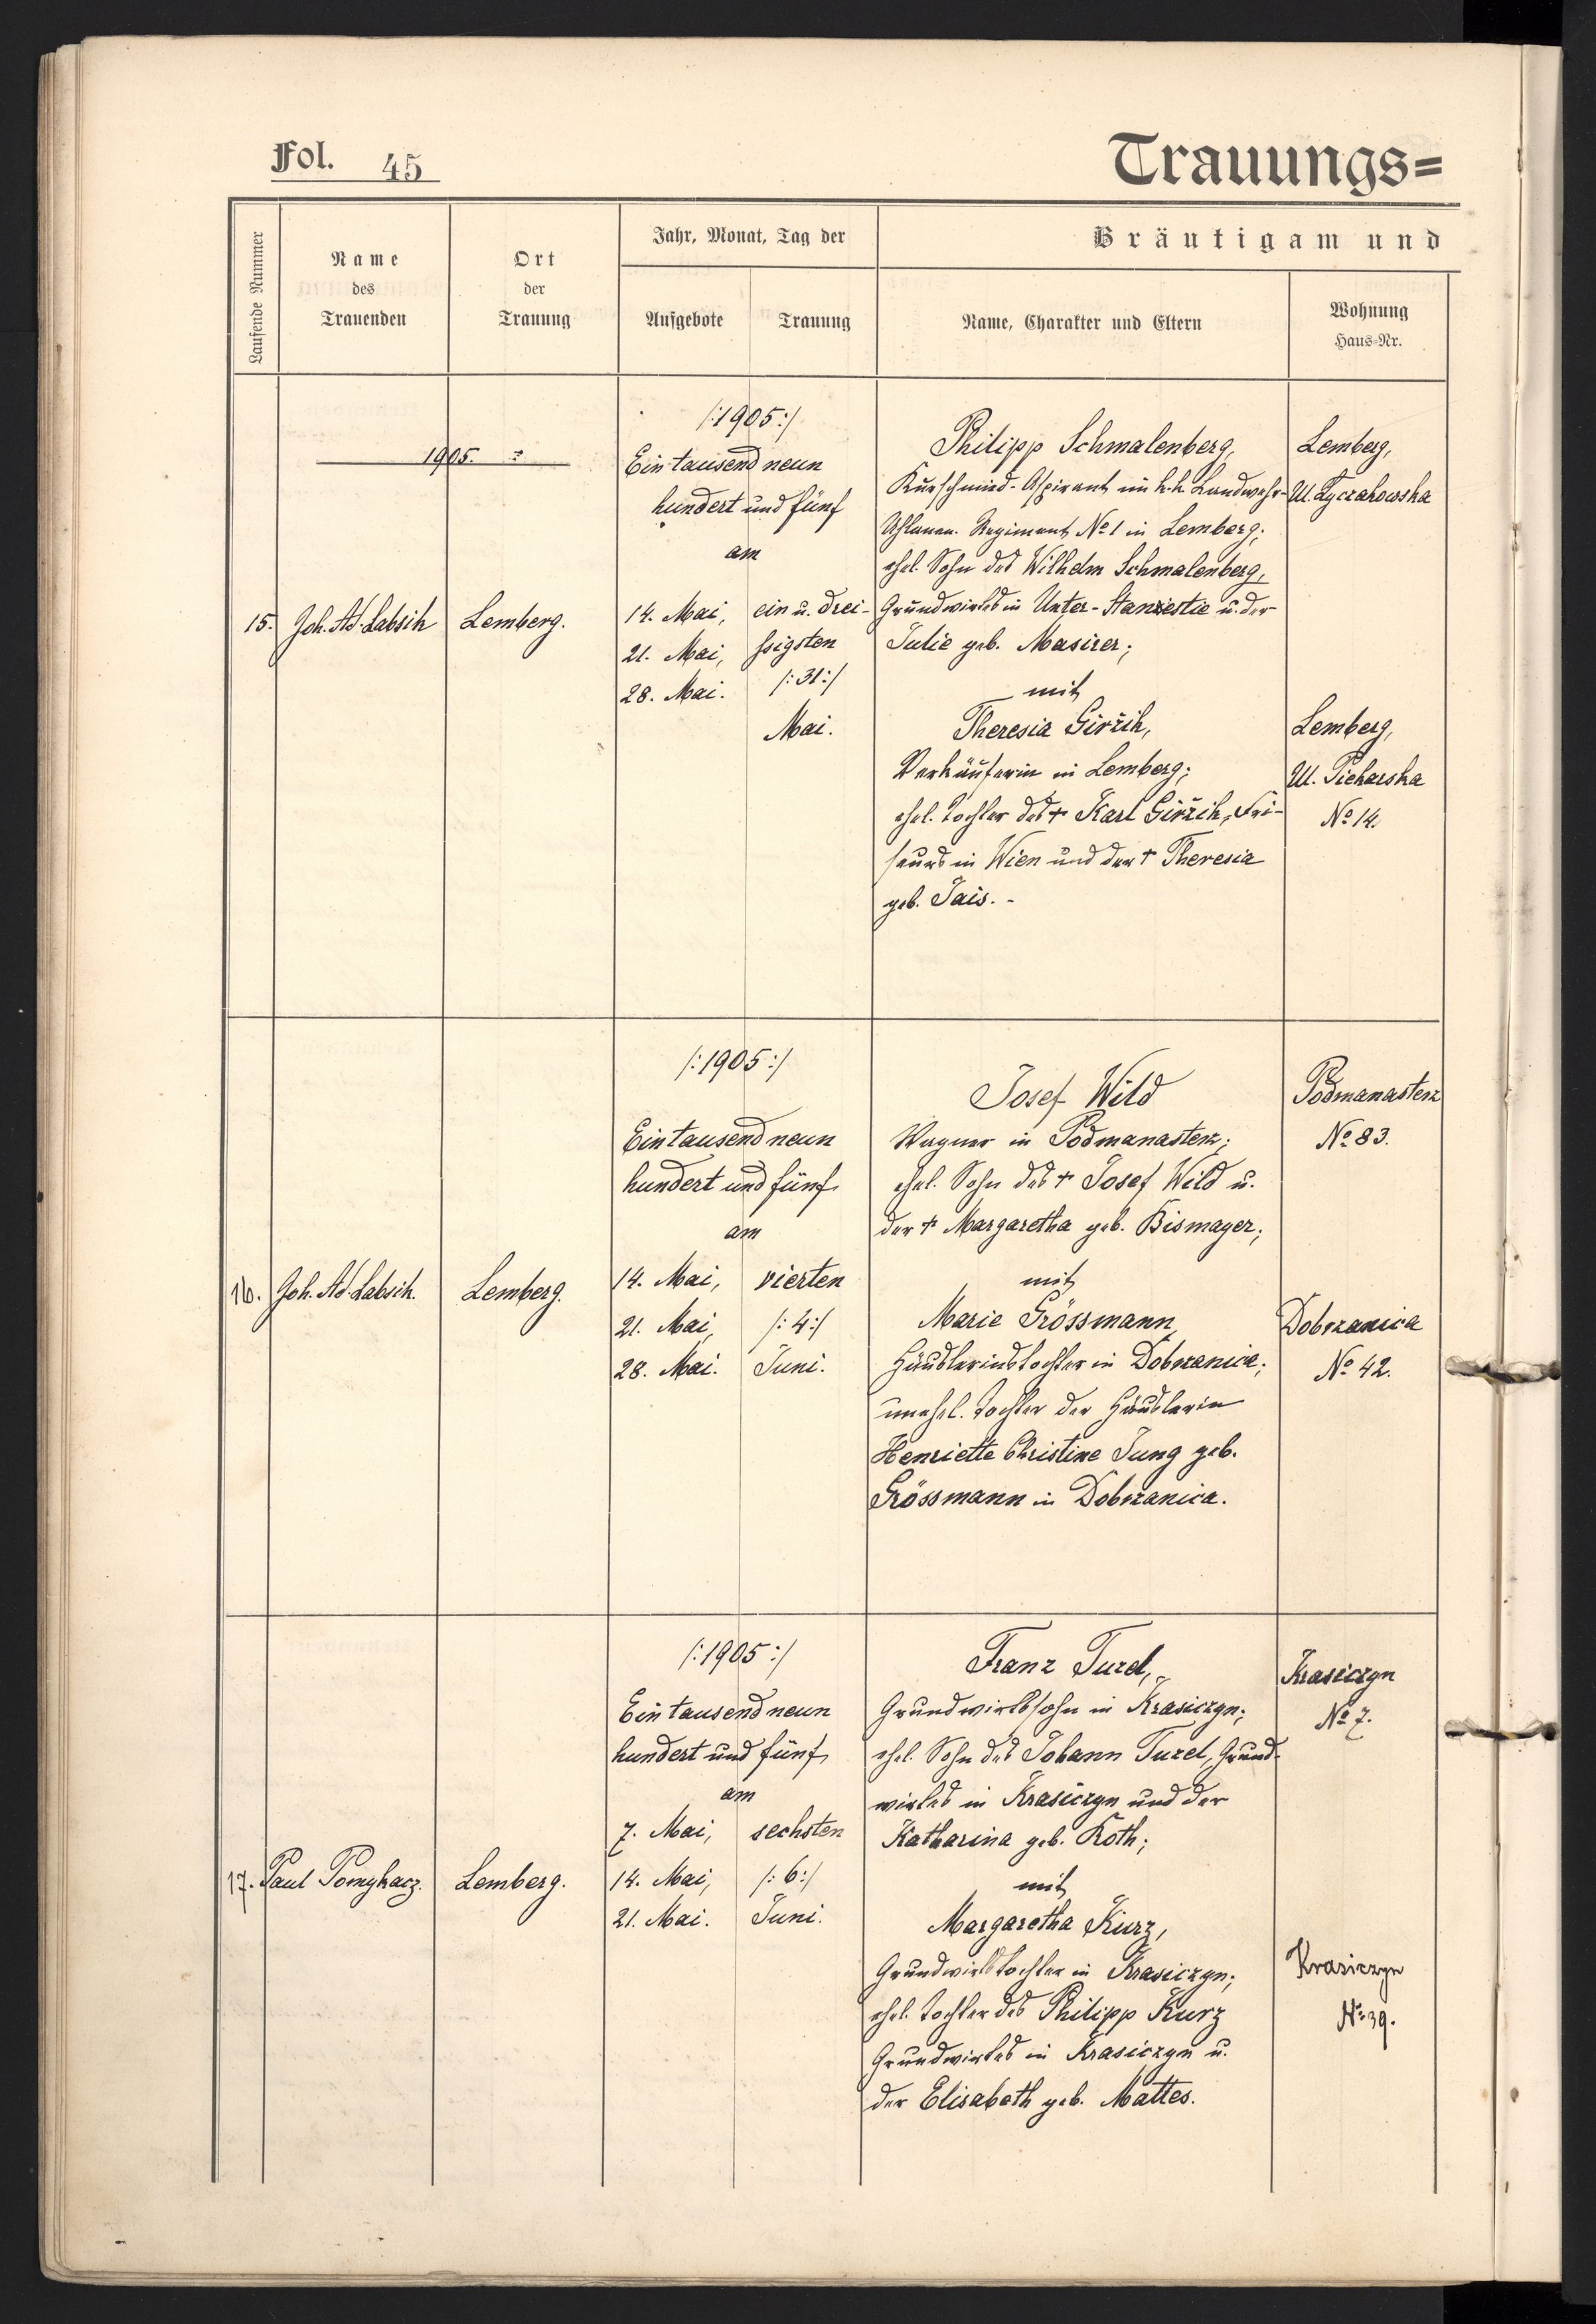 Fol. 45
Trauungs=
Laufende Nummer
Name
des
Trauenden
Ort
der
Trauung
Jahr, Monat, Tag der
Aufgebote
Trauung
Bräutigam und
Name, Charakter und Eltern
Wohnung
Haus=Nr.
1905.
15.
Joh. Ad. Labsik
Lemberg.
/:1905:/
Ein tausend neun
hundert und fünf
am
14. Mai,
21. Mai,
28. Mai.
ein u. drei-
ssigsten
/:31:/
Mai.
Philipp Schmalenberg,
Kurschmied-Aspirant im k.k. Landwehr-
Uhlanen-Regiment No 1 in Lemberg;
ehel. Sohn des Wilhelm Schmalenberg,
Grundwirtes in Unter-Stanestie u. der
Julie geb. Masirer;
mit
Theresia Giržik,
Verkäuferin in Lemberg;
ehel. Tochter des + Karl Giržik, Fri-
seurs in Wien und der + Theresia
geb. Jais. -
Lemberg,
Ul. Łyczakowska
Lemberg,
Ul. Piekarska
No 14.
16.
Joh. Ad. Labsik.
Lemberg.
/:1905:/
Ein tausend neun
hundert und fünf
am
14. Mai,
21. Mai,
28. Mai.
vierten
/:4:/
Juni.
Josef Wild
Wagner in Podmanasterz;
ehel. Sohn des + Josef Wild u.
der + Margaretha geb. Bismayer;
mit
Marie Grössmann,
Häuslerinstochter in Dobrzanica;
unehel. Tochter der Häuslerin
Henriette Christine Jung geb.
Grössmann in Dobrzanica.
Podmanasterz
No 83.
Dobrzanica
No 42.
17.
Paul Pomykacz.
Lemberg.
/:1905:/
Ein tausend neun
hundert und fünf
am
7. Mai,
14. Mai,
21. Mai.
sechsten
/:6:/
Juni.
Franz Turel,
Grundwirtssohn in Krasiczyn;
ehel. Sohn des Johann Turel, Grund-
wirtes in Krasiczyn und der
Katharina geb. Koth;
mit
Margaretha Kurz,
Grundwirtstochter in Krasiczyn;
ehel. Tochter des Philipp Kurz
Grundwirtes in Krasiczyn u.
der Elisabeth geb. Mattes.
Krasiczyn
No 7.
Krasiczyn
No 39.